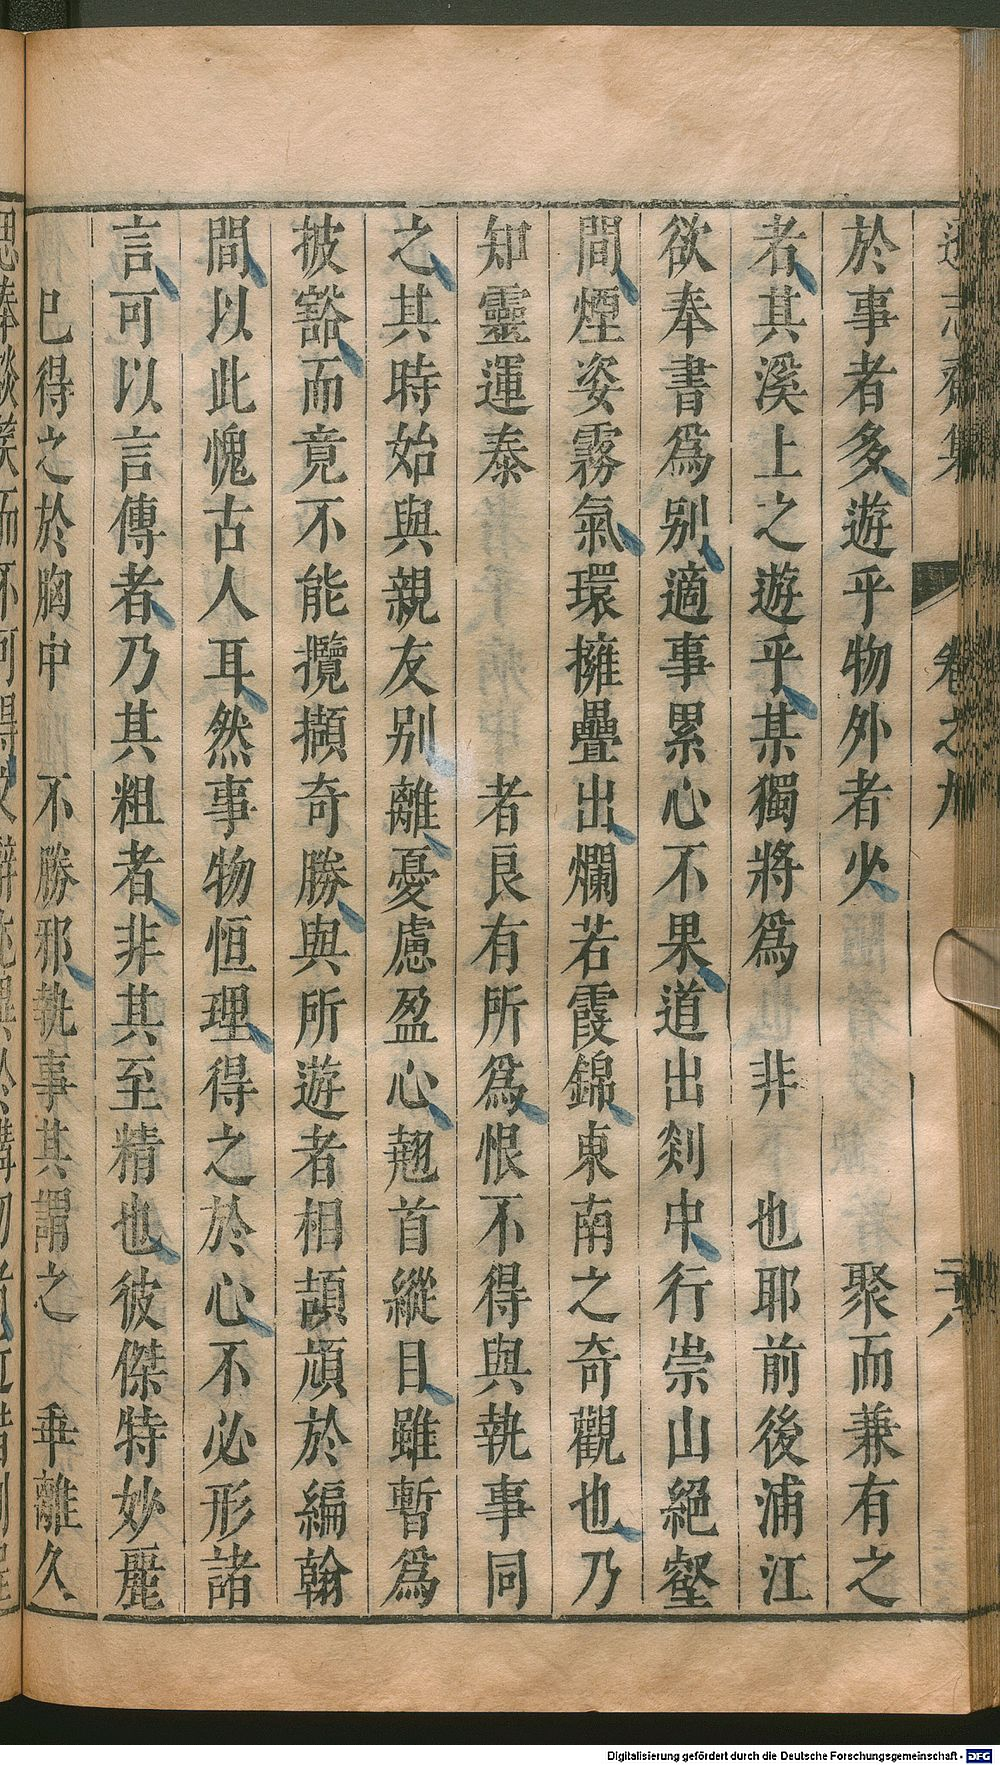 遜志齋集 卷之九 二十八
於事者多遊乎物外者少 聚而兼有之
者其溪上之遊乎某獨將爲 非 也耶前後浦江
欲奉書爲别適事累心不果道出剡中行崇山絕壑
間煙姿霧氣環擁疊出爛若霞錦東南之奇觀也乃
知靈運泰 者良有所爲恨不得與執事同
之其時始與親友别離憂慮盈心翹首縱目雖暫爲
披豁而竟不能攬擷奇勝與所遊者相頡頏於編翰
間以此愧古人耳然事物恒理得之於心不必形諸
言可以言傳者乃其粗者非其至精也彼傑特妙麗
已得之於胸中 不勝邪執事其謂之 乖離久
Digitalisierung gefördert durch die Deutsche Forschungsgemeinschaft - DFG